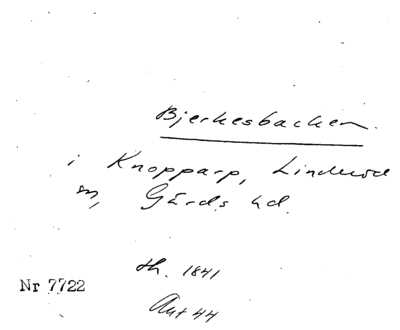 Bjerkesbacken.
i Knopparp, Linderöd
sn, Gärds hd.
th. 1841
Nr 7722
Ant 44